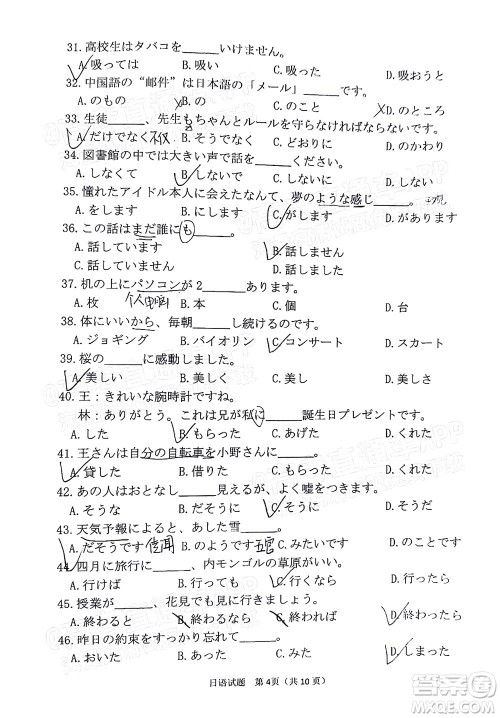 31. 高校生はタバコを______いけません。
A. 吸っては B. 吸い C. 吸った D. 吸おうと
32. 中国語の“邮件”は日本語の「メール」______です。
A. のもの B. の C. こと D. のところ
33. 生徒______、先生もちゃんとルールを守らなければならない。
A. だけでなく 不仅 B. そうでなく C. どおりに D. のかわり
34. 図書館の中では大きい声で話を______ください。
A. しなくて B. しなく C. しない D. しないで
35. 憧れたアイドル本人に会えたなんて、夢のような感じ______。
A. をします B. にします C. がします D. でします
36. この話はまだ誰にも______。
A. 話しています B. 話しません
C. 話していません D. 話しました
37. 机の上にパソコンが2______あります。
A. 枚 B. 本 C. 個 D. 台
38. 体にいいから、毎朝______し続けるのです。
A. ジョギング B. バイオリン C. コンサート D. スカート
39. 桜の______に感動しました。
A. 美しい B. 美しさ C. 美しく D. 美しくて
40. 王：きれいな腕時計ですね。
林：ありがとう。これは兄が私に______誕生日プレゼントです。
A. した B. もらった C. あげた D. くれた
41. 王さんは自分の自転車を小野さんに______。
A. 貸した B. 借りた C. もらった D. くれた
42. あの人はおとなし______見えるが、よく嘘をつきます。
A. そうな B. だそうに C. そうに D. そうだ
43. 天気予報によると、あした雪______。
A. だそうです B. のようです C. みたいです D. のことです
44. 四月に旅行に______、内モンゴルの草原がいい。
A. 行けば B. 行くと C. 行ったら D. 行くなら
45. 授業が______、花見でも見に行きましょう。
A. 終わると B. 終われば C. 終わるなら D. 終わったら
46. 昨日の約束をすっかり忘れて______。
A. おいた B. あった C. みた D. しまった
日语试题 第4页（共10页）